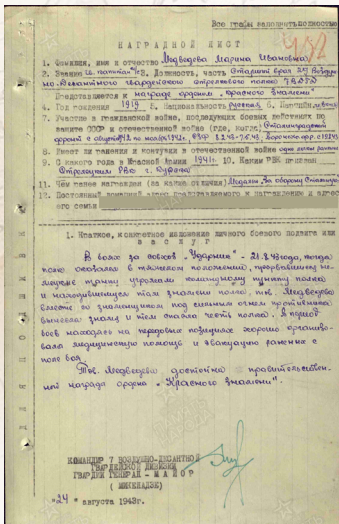 Все графы заполнять полностью
НАГРАДНОЙ ЛИСТ
1. Фамилия, имя и отчество Медведева Марина Ивановна
2. Звание 3. Должность, часть Старший врач 29 Воздуш
но-Десантного гвардейского стрелкового полка 7 ВДГД
Представляется к награде ордена "Красного знамени"
4. Год рождения 1919 5. Национальность русская 6. Партийн
7. Участие в гражданской войне, последующих боевых действиях по
защите СССР и отечественной войне (где, когда) Сталинградский
фронт с августа
8. Имеет ли ранения и контузии в отечественной войне одно легкое ранение
9. С какого года в Красной Армии 1941г. 10. Каким РВК призван
РВК г.
11. Чем ранее награжден (за какие отличия) Медаль "За оборону Сталингр
12. Постоянный домашний адрес представляемого к награждению и адрес
его семьи
1. Краткое, конкретное изложение личного боевого подвига или
заслуг
В боях за совхоз "Ударник" - 21.8.43 года, когда
полк оказался в тяжелом положении, прорвавшиеся не-
мецкие танки угрожали командному пункту полка
и находившемуся там знамени полка, тов. Медведева
вместе со знаменщиком под сильным огнем противника
вынесла знамя и тем спасла честь полка. В период
боев находясь на передовых позициях хорошо организо-
вала медицинскую помощь и эвакуацию раненых с
поля боя.
Тов. Медведева достойна правительствен-
ной награды ордена "Красного знамени".
КОМАНДИР 7 ВОЗДУШНО-ДЕСАНТНОЙ
ГВАРДЕЙСКОЙ ДИВИЗИИ
ГВАРДИИ ГЕНЕРАЛ - МАЙОР
( МИКЕЛАДЗЕ )
"24" августа 1943г.